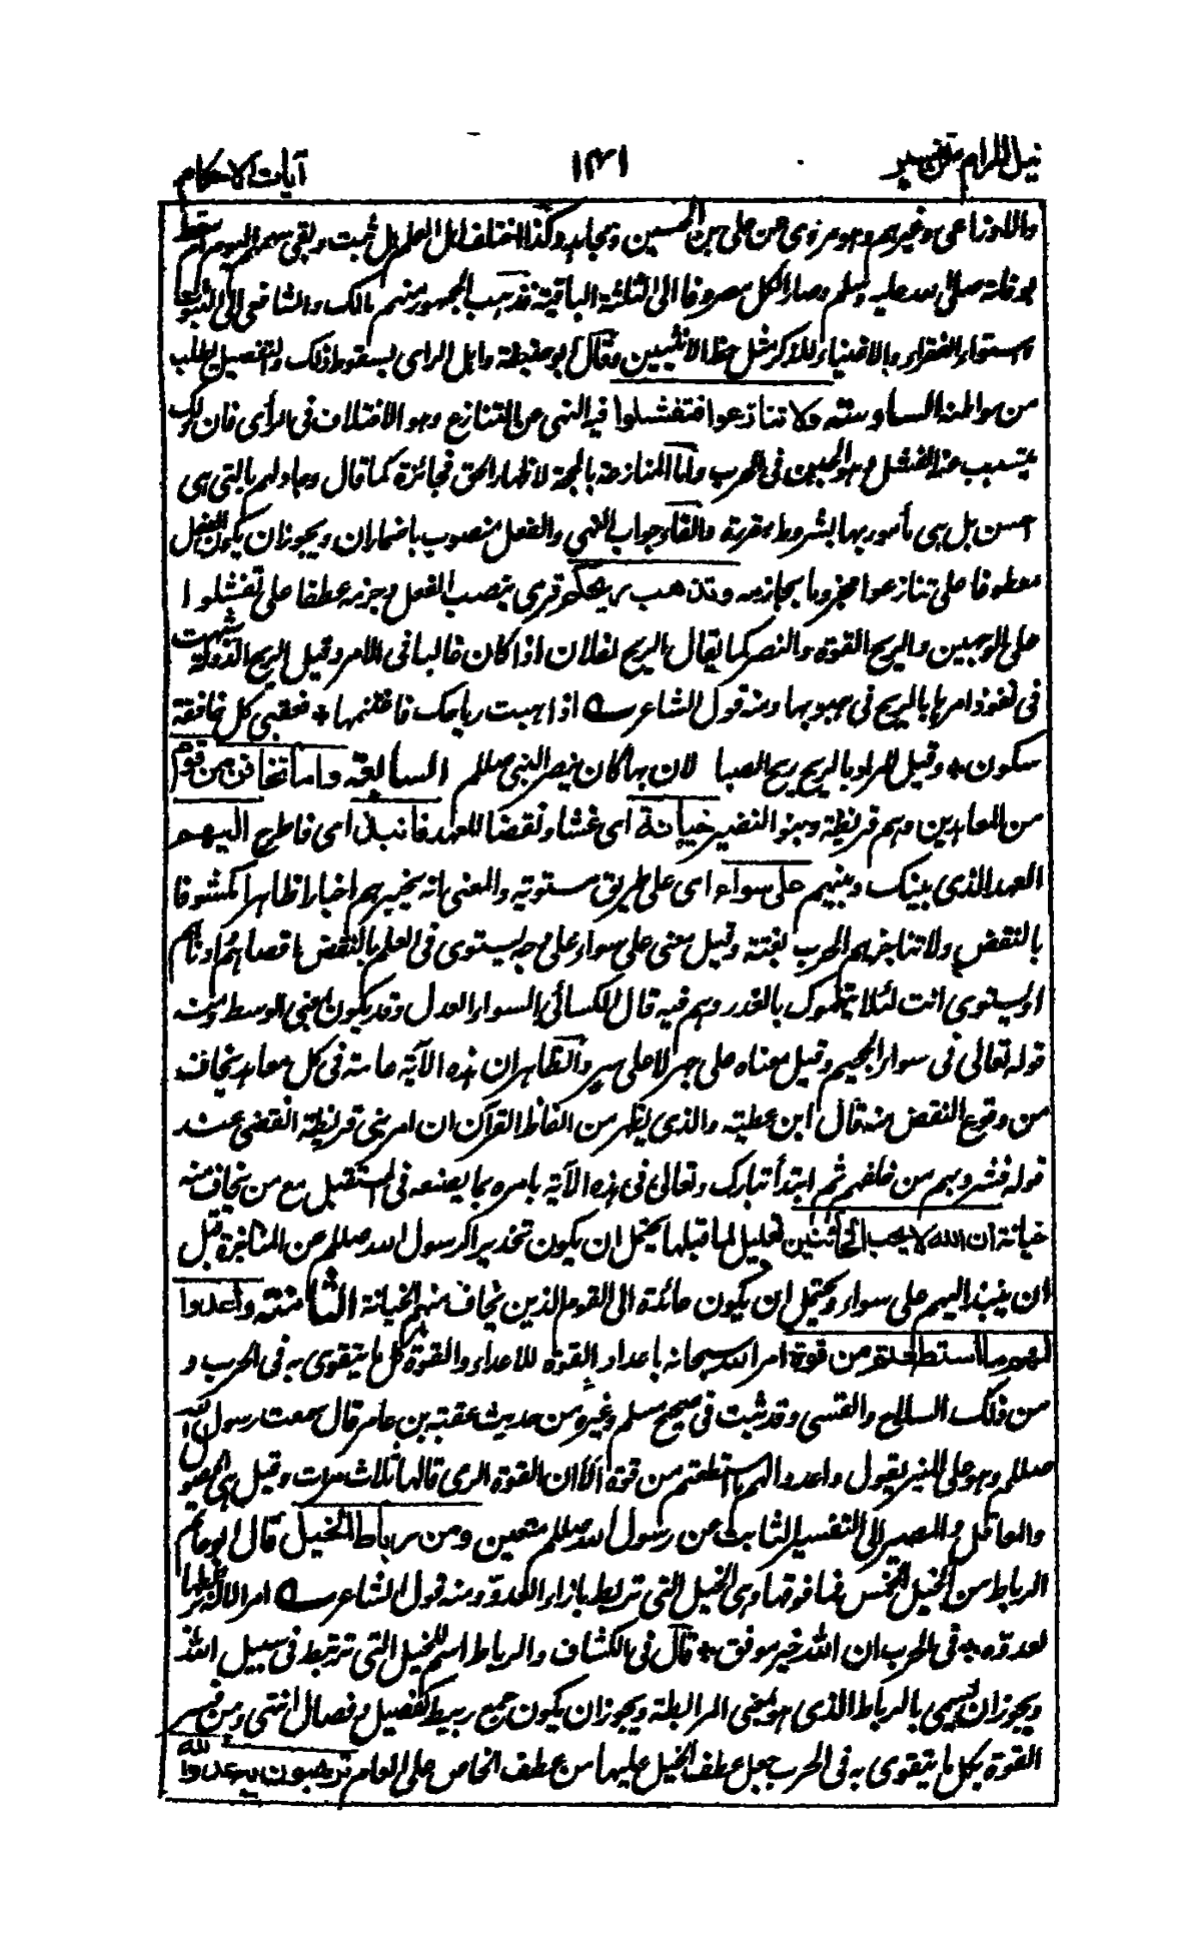 نيل المرام من تفسير ١٣١ آيات الاحكام
والاوزاعي وغيرهم وهو مروي عن علي بن الحسين ومجاهد وكذا اختلف اهل العلم هل ثبت وبقي سهم اليوم ام سقط
بوفاته صلى الله عليه وسلم وصار الكل مصروفا الى الثلثة الباقية فذهب الجمهور منهم مالك والشافعي الى الثبوت
واستواء الفقراء والاغنياء للذكر مثل حظ الانثيين وقال ابو حنيفة واهل الراى بسقوط ذلك والتفصيل يطلب
من مواطنه السادسة ولا تنازعوا فتفشلوا فيه النهي عن التنازع وهو الاختلاف في الرأي فان ذلك
يتسبب عنه الفشل وهو الجبن في الحرب واما المنازعة بالحجة لاظهار الحق فجائزة كما قال وجادلهم بالتي هي
احسن بل هي مأمور بها بشروط مقررة والفاء جواب النهي والفعل منصوب باضمار ان ويجوز ان يكون الفعل
معطوفا على تنازعوا مجزوما بجازمه وتذهب ريحكم قرى بنصب الفعل وجزمه عطفا على تفشلوا
على الوجهين والريح القوة والنصر كما يقال الريح لفلان اذا كان غالبا في الامر وقيل الريح الدولة شبهت
في نفوذ امرها بالريح في هبوبها ومنه قول الشاعر اذا هبت رياحك فاغتنمها * فعقبى كل خافقة
سكون * وقيل المراد بالريح ريح الصبا لان بها كان ينصر النبي صللم السابعة واما تخافن من قوم
من المعاهدين وهم قريظة وبنو النضير خيانة اى غشا ونقضا للعهد فانبذ اى فاطرح اليهم
العهد الذي بينك وبينهم على سواء اى على طريق مستوية والمعنى انه يخبرهم اخبارا ظاهرا مكشوفا
بالنقض ولا تناجزهم الحرب بغتة وقيل معنى على سواء على وجه يستوى في العلم بالنقض اقصاهم وادناهم
او يستوى انت لئلا يتهموك بالغدر وهم فيه قال الكسائي السواء العدل وقد يكون بمعنى الوسط ومنه
قوله تعالى في سواء الجحيم وقيل معناه على جهر لا على سر والظاهر ان هذه الآية عامة في كل معاهد يخاف
من وقوع النقض منه قال ابن عطية والذي يظهر من الفاظ القرآن ان امر بني قريظة انقضى عند
قوله فشرد بهم من خلفهم ثم ابتدأ تبارك وتعالى في هذه الآية بامره بما يصنعه في المستقبل مع من يخاف منه
خيانة ان الله لا يحب الخائنين تعليل لما قبلها يحتمل ان يكون تحذيرا لرسول الله صللم عن المناجزة قبل
ان ينبذ اليهم على سواء ويحتمل ان يكون عائدة الى القوم الذين تخاف منهم الخيانة الثامنة واعدوا
لهم ما استطعتم من قوة امر الله سبحانه باعداد القوة للاعداء والقوة كل ما يتقوى به في الحرب و
من ذلك السلاح والقسي وقد ثبت في صحيح مسلم وغيره من حديث عقبة بن عامر قال سمعت رسول الله
صللم وهو على المنبر يقول واعدوا لهم ما استطعتم من قوة ألا ان القوة الرمى قالها ثلاث مرات وقيل هي الحصون
والمعاقل والمصير الى التفسير الثابت عن رسول الله صللم متعين ومن رباط الخيل قال ابو حاتم
الرباط من الخيل الخمس فما فوقها وهي الخيل التي ترتبط بازاء العدو ومنه قول الشاعر امر الاله بربطها
لعدوه * في الحرب ان الله خير موفق * قال في الكشاف والرباط اسم للخيل التي ترتبط في سبيل الله
ويجوز ان تسمى بالرباط الذى هو بمعنى المرابطة ويجوز ان يكون جمع ربيط كفصيل وفصال انتهى ومن فسر
القوة بكل ما يتقوى به في الحرب جعل عطف الخيل عليها من عطف الخاص على العام ترهبون به عدو الله